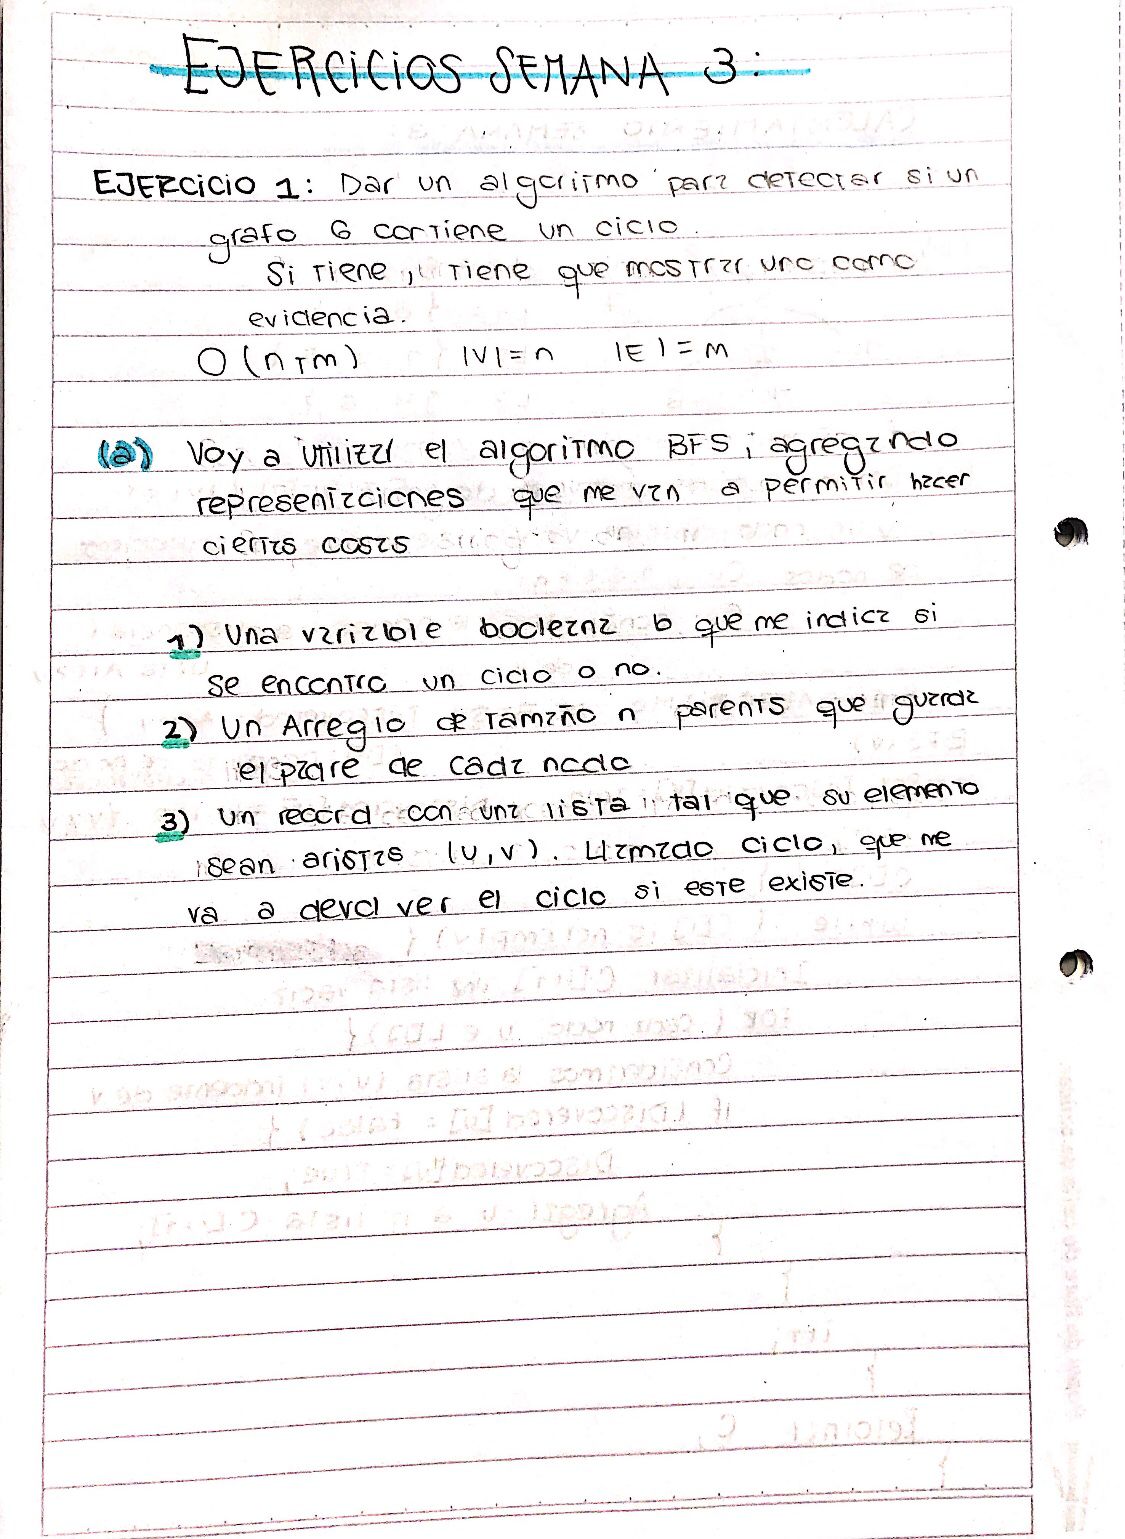 EJERCICIOS SEMANA 3:
EJERCICIO 1: Dar un algoritmo para detectar si un
grafo G contiene un ciclo.
Si tiene, tiene que mostrar uno como
evidencia.
O(n+m) |V|=n |E|=m
(a) Voy a utilizar el algoritmo BFS, agregando
representaciones que me van a permitir hacer
ciertas cosas
1) Una variable booleana b que me indica si
se encontro un ciclo o no.
2) Un Arreglo de tamaño n parents que guarda
el padre de cada nodo
3) Un record con una lista tal que su elemento
sean aristas (u,v). Llamado ciclo, que me
va a devolver el ciclo si este existe.